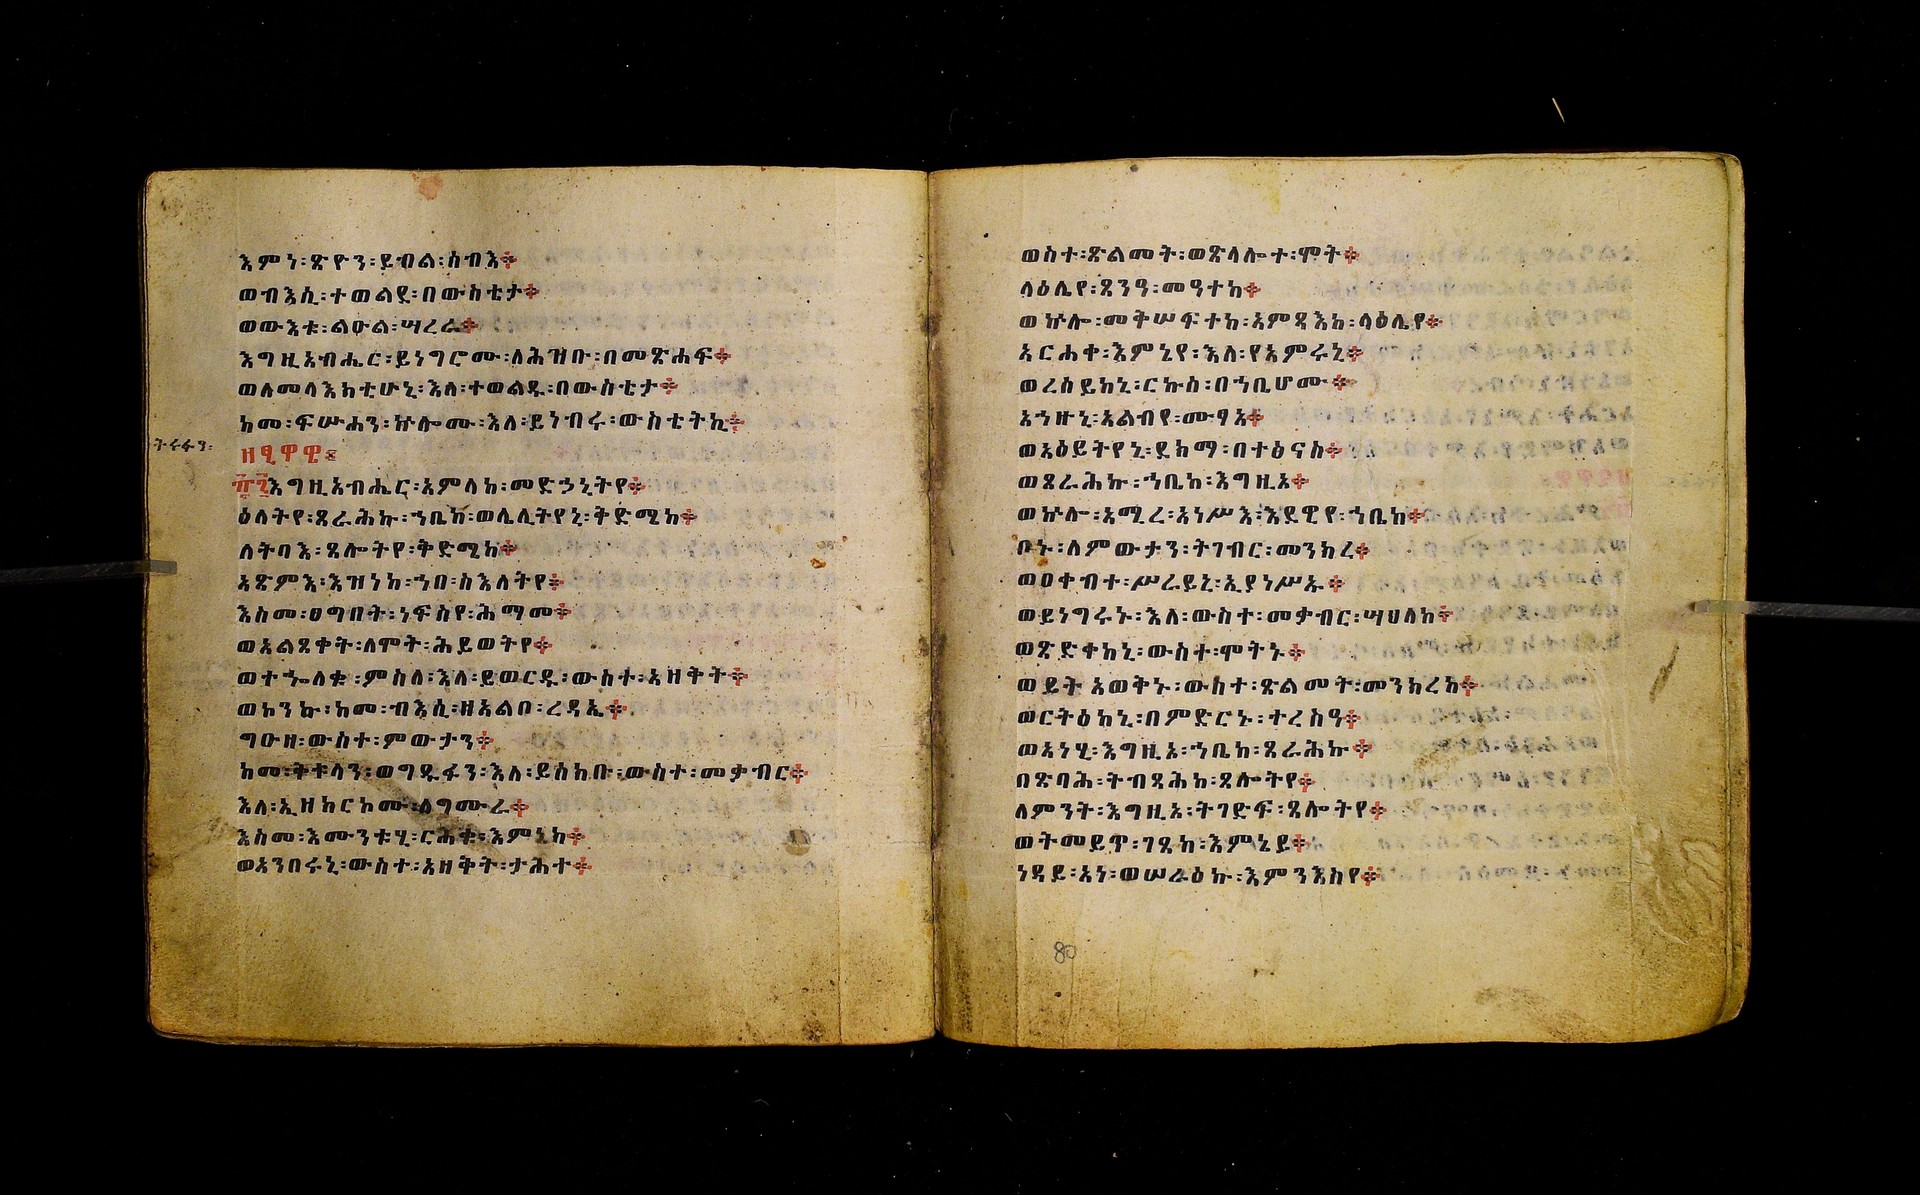 እምነ፡ጽዮን፡ይብል፡ሰብእ፨
ወብእሲ፡ተወልደ፡በውስቴታ፨
ወውእቱ፡ልዑል፡ሣረራ፨
እግዚአብሔር፡ይነግሮሙ፡ለሕዝቡ፡በመጽሐፍ፨
ወለመላእክቲሁኒ፡እለ፡ተወልዱ፡በውስቴታ፨
ከመ፡ፍሡሐን፡ኵሎሙ፡እለ፡ይነብሩ፡ውስቴትኪ፨
ትሩፋን፡
ዘፂዋዊ፡
፹፯እግዚአብሔር፡አምላከ፡መድኃኒትየ፨
ዕለትየ፡ጸራሕኩ፡ኀቤከ፡ወሌሊትየኒ፡ቅድሜከ፨
ለትባእ፡ጸሎትየ፡ቅድሜከ፨
አጽምእ፡እዝነከ፡ኀበ፡ስእለትየ፨
እስመ፡ፀግበት፡ነፍስየ፡ሕማመ፨
ወአልጸቀት፡ለሞት፡ሕይወትየ፨
ወተኈለቁ፡ምስለ፡እለ፡ይወርዱ፡ውስተ፡አዘቅት፨
ወኮንኩ፡ከመ፡ብእሲ፡ዘአልቦ፡ረዳኢ፨
ግዑዘ፡ውስተ፡ምውታን፨
ከመ፡ቅተላን፡ወግዱፋን፡እለ፡ይሰክቡ፡ውስተ፡መቃብር፨
እለ፡ኢዘከርኮሙ፡ለግሙራ፨
እስመ፡እሙንቱሂ፡ርሕቁ፡እምኔከ፨
ወአንበሩኒ፡ውስተ፡አዘቅት፡ታሕተ፨
ወስተ፡ጽልመት፡ወጽላሎተ፡ሞት፨
ላዕሌየ፡ጸንዓ፡መዓተከ፨
ወኵሎ፡መቅሠፍተከ፡አምጻእከ፡ላዕሌየ፨
አርሐቀ፡እምኔየ፡እለ፡የአምሩኒ፨
ወረሰይከኒ፡ርኩሰ፡በኀቤሆሙ፨
አኀዙኒ፡አልብየ፡ሙፃአ፨
ወአዕይትየኒ፡ደክማ፡በተፅናስ፨
ወጸራሕኩ፡ኀቤከ፡እግዚአ፨
ወኵሎ፡አሚረ፡አነሥእ፡እደዊየ፡ኀቤከ፨
ቦኑ፡ለምውታን፡ትገብር፡መንክረ፨
ወዐቀብተ፡ሥራይኒ፡ኢያነሥኡ፨
ወይነግሩኑ፡እለ፡ውስተ፡መቃብር፡ሣህለከ፨
ወጽድቀከኒ፡ውስተ፡ሞትኑ፨
ወይት አወቅኑ፡ውስተ፡ጽልመት፡መንክረከ፨
ወርትዕከኒ፡በምድርኑ፡ተረስዓ፨
ወአነሂ፡እግዚአ፡ኀቤከ፡ጸራሕኩ፨
በጽባሕ፡ትብጻሕከ፡ጸሎትየ፨
ለምንት፡እግዚአ፡ትገድፍ፡ጸሎትየ፨
ወትመይጥ፡ገጸከ፡እምኔይ፨
ነዳይ፡አነ፡ወሠራዕኩ፡እምንእስየ፨
80